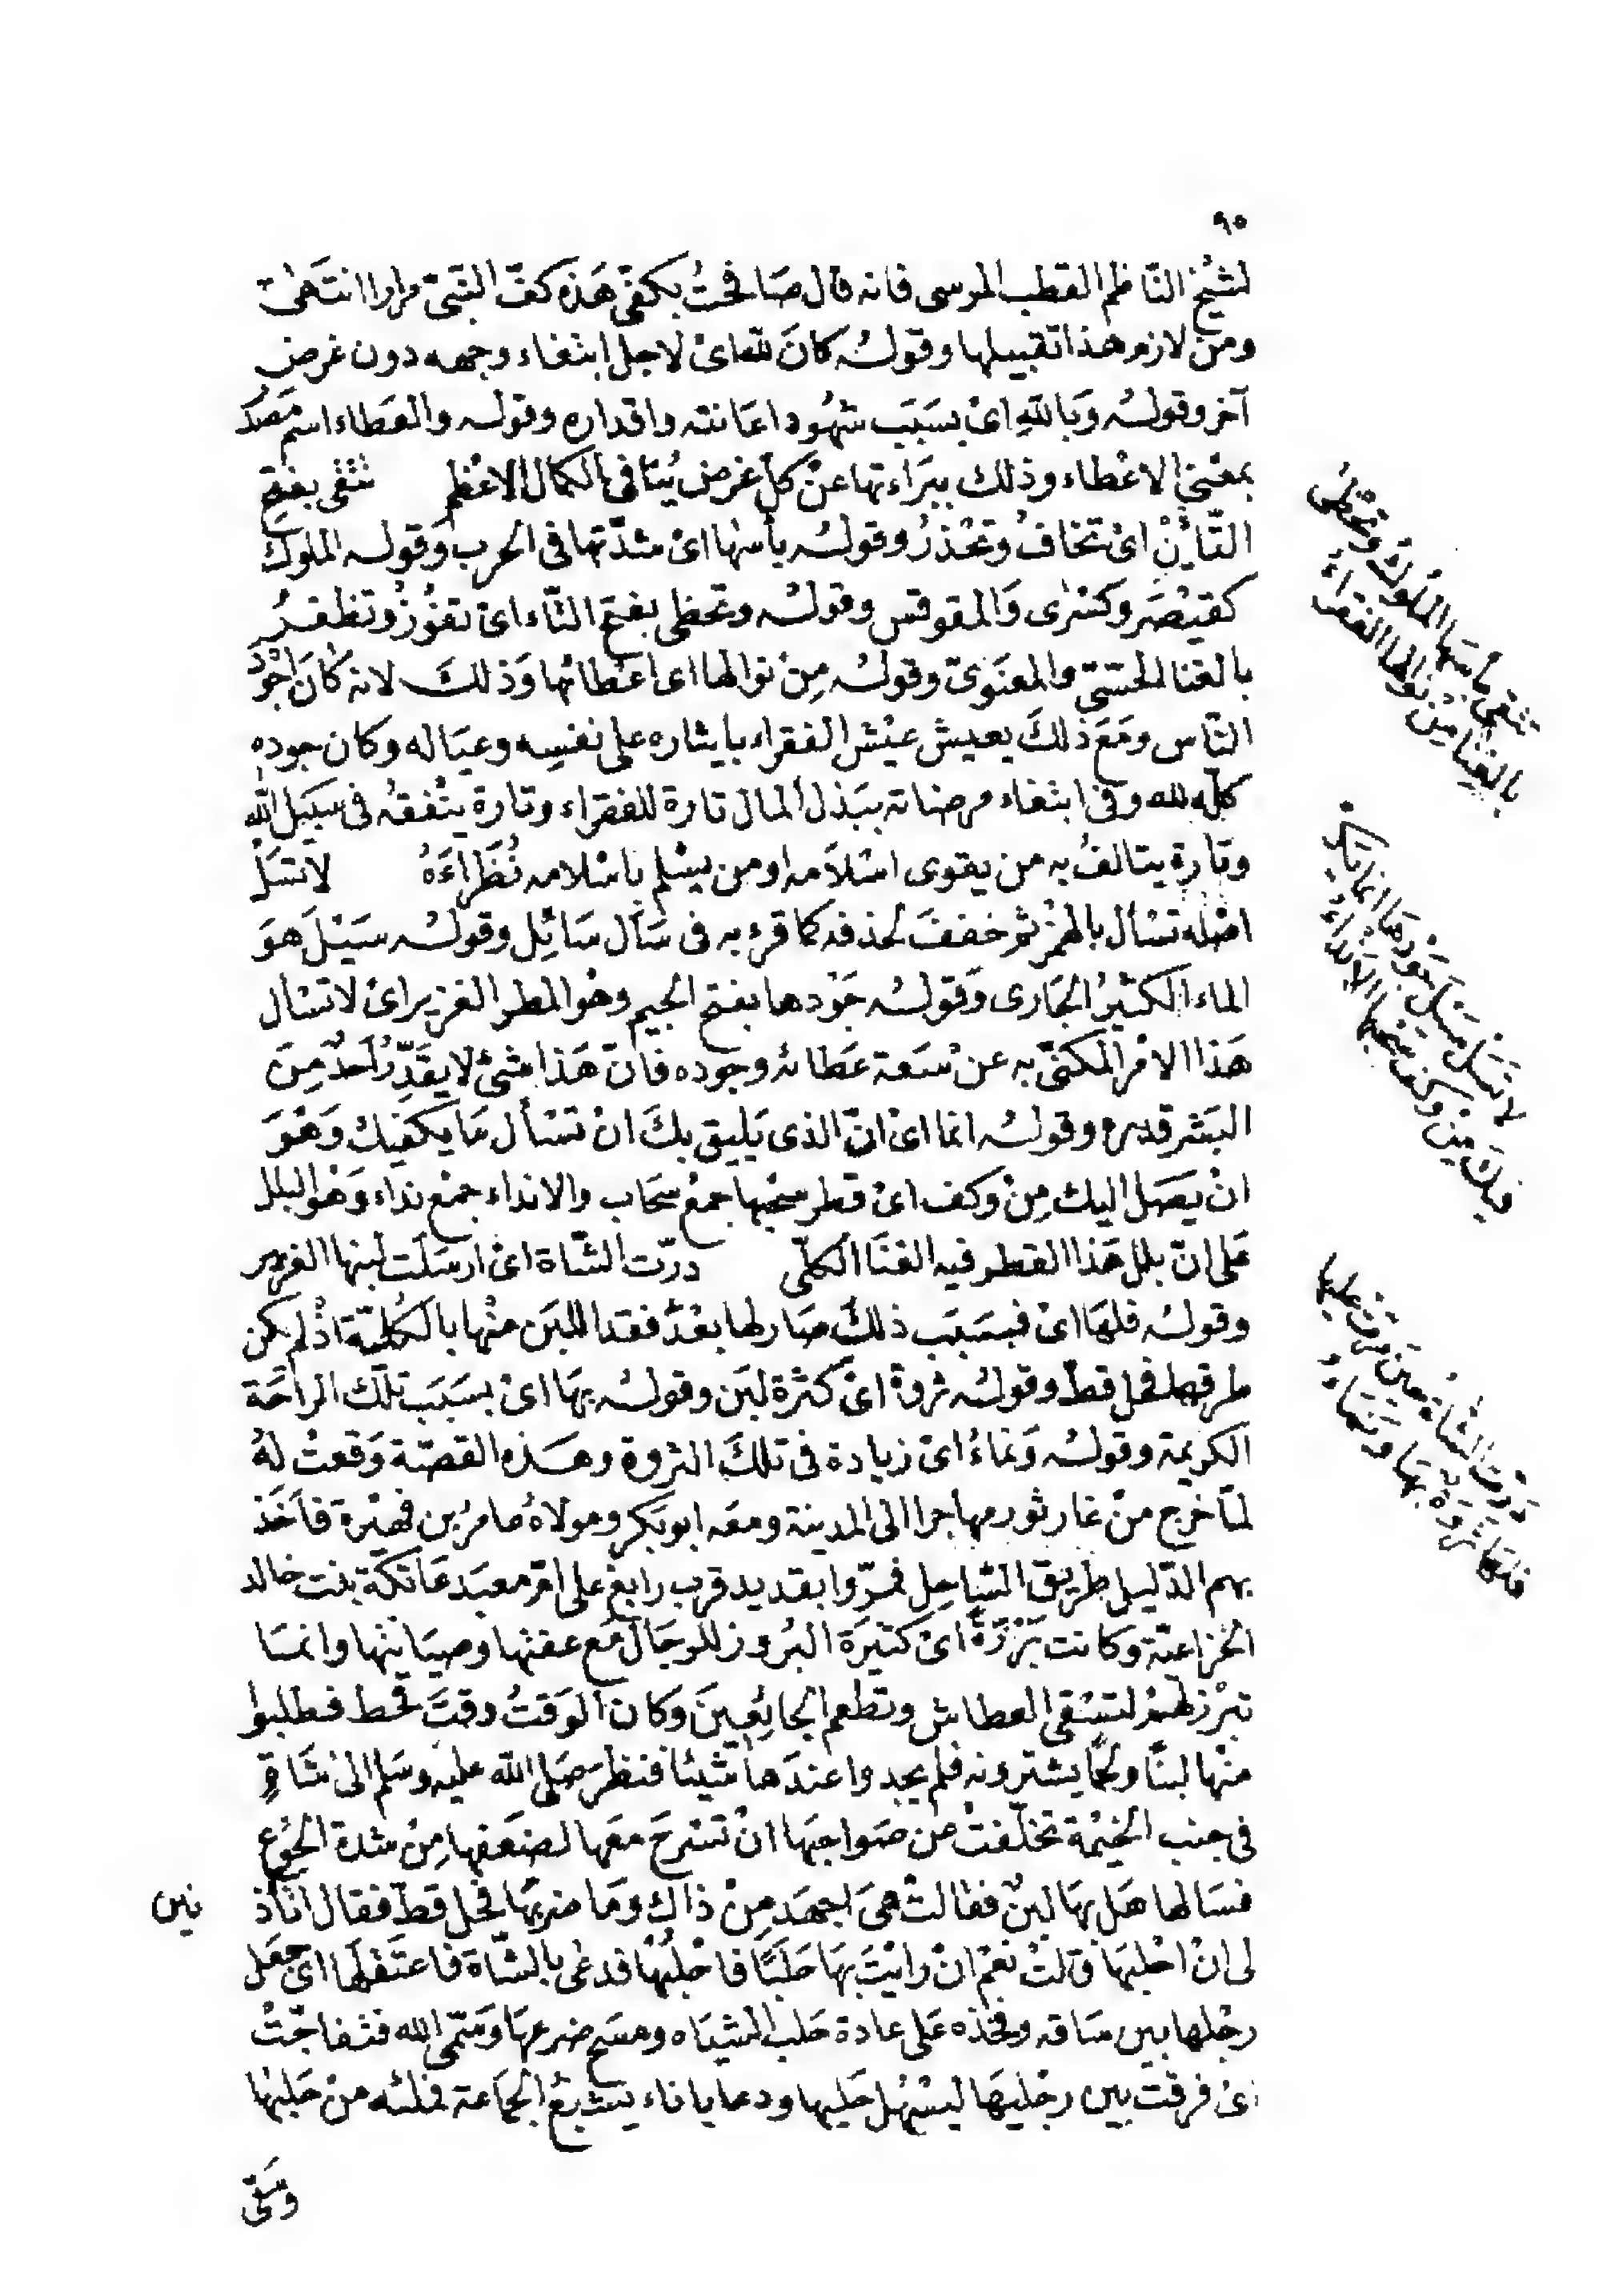 ٩٥
لشيخ الناظم القطب المرسى فانه قال صَافحتُ بكفّى هَذه كفّ النبىّ مرارا انتَهىٰ
ومن لازم هذا تقبيلها وقولـُه كانَ للّه اىْ لاجل ابتغاء وجهه دون غرضٍ
آخر وقولـُه وَباللّهِ اىْ بسَبَب شهُود اعَانته واقداره وقولـه والعَطاء اسم مَصدَر
بمعْنى الاعْطاء وذلك ببَراءتها عنْ كلّ غرض يُنافى الكمال الاعْظم تتّقى بفتحِ
التّائيْن اىْ تخافُ وتَحْذرُ وقولـُه بأسَهَا اىْ شدّتها فى الحرب وَقولـه الملوك
كقيْصَر وكسْرٰى وَالمقوقس وقولـُه وتحظى بفتح التّاء اىْ تفوُزُ وتظفـرُ
بالغنا الحسّىّ والمعنَوىّ وقولـُه مِنْ نوالها اى اعْطائها وَذلكَ لانه كانَ اجْوَدَ
النّاس ومَعَ ذلكَ يعيش عيْش الفقراء بايثاره على نفسِه وعيَاله وكان جوده
كلّه لله وفى ابتغاء مرضاته ببَذل المال تارة للفقراء وتارة ينْفقهُ فى سبَيل الله
وتارة يتالفُ به من يقوى اسْلاَمه او من يسْلم باسْلامه نُظَراءَهُ لاتسَلْ
اصْله تسْأل بالهمْز ثم خففَ لحذفه كما قرئ به فى سَأل سَائِل وقولـُه سَيْلَ هوَ
الماء الكثيرُ الجَارى وَقولـُه جَوْدها بفتح الجيم وهْو المطر الغزير اىْ لاتسْأل
هَذا الامْر المكنّى به عنْ سَعة عَطائه وجوده فانّ هَذا شئ لا يقَدِّرُ اَحدٌ مِنَ
البَشر قدره وقولـُه انما اىْ انّ الذى يَليق بكَ انْ تسْأل مَا يكفيكْ وَهْوَ
انْ يَصَل اليك مِنْ وكف اىْ قطر سحْبها جمعْ سَحَاب والانداء جمْع نداء وَهْو البلل
عَلى انّ بلل هَذا القطر فيه الغنَا الكلّى درّت الشّاة اىْ ارسَلت لبنها الغزير
وقولـُه فلهَا اىْ فبسَبَب ذلكَ صَار لها بعْدَ فقد اللبَن منْها بالكُليّة اذْ لم يكن
طرقها فحل قطّ وقولـُه ثروةٌ اىْ كثْرة لبَن وقولـُه بهَا اىْ بسَبَب تلك الراحَة
الكريمة وقولـُه وَنماءُ اىْ زيادة فى تلكَ الثروة وهـَذه القصّة وَقعتْ لهُ
لمّا خرَج منْ غار ثور مهاجرا الى المدينة ومعَه ابو بَكر ومولاهُ عامرُ بن فهيْرة فأخَذ
بهم الدّليل طريق السّاحِل فمرّوا بقديد قرب رابغ على امّ معبَد عَاتكة بنت خالد
الخزاعيّة وكانت بَرْزَةً اىْ كثيرَة البُروز للرجَال مَع عفتها وصيَانتها وانمـَا
تبرْز لهُمْ لتسْقى العطاش وتطعم الجائِعينَ وَكان الوَقتُ وقتَ قحط فطلبوا
منْها لبنًا ولحمًا يشترونه فلم يجدوا عندَها شيئا فنظرَ صَلى الله عليه وسَلم الى شَاةٍ
فى جنب الخيْمة تخلّفتْ من صَواحبهَا انْ تسْرحَ معَها لضعَفها مِنْ شدة الجُوع
فسَالها هَل بهَا لبنٌ فقالتْ هىَ اجهَد مِنْ ذاكَ ومَا ضرَبهَا فحْل قطّ فقال اتأذ نين
لى انْ احْلبهَا قالتْ نعَمْ انْ رأيْتَ بهَا حَلَبًا فاحْلُبْهَا فدعَى بالشّاة فاعتَقلهَا اى جعَل
رجْلها بين سَاقه وفخذه عَلى عادة حَلب الشيَاه ومسَح ضرعهَا وَسَمّى الله فتفاجّتْ
اىْ فرقت بين رجْليهَا ليسْهُل حَلبها ودعا باناء يشْبعُ الجمَاعة فملئه منْ حَلبهَا
وسَقى
تتّقى بأسَها المُلوكُ وتحْظى
بالغِنَا مِنْ نوالها الفقراءُ
لاتسَلْ سَيْلَ جَوْدهَا انما يَكْـ
فيكَ مِنْ وكفِ سُحْبها الانداءُ
دَرّتِ الشّاةُ حِينَ مَرّتْ عليها
فلهَا ثَرْوَةٌ بهَا ونَمَاءُ